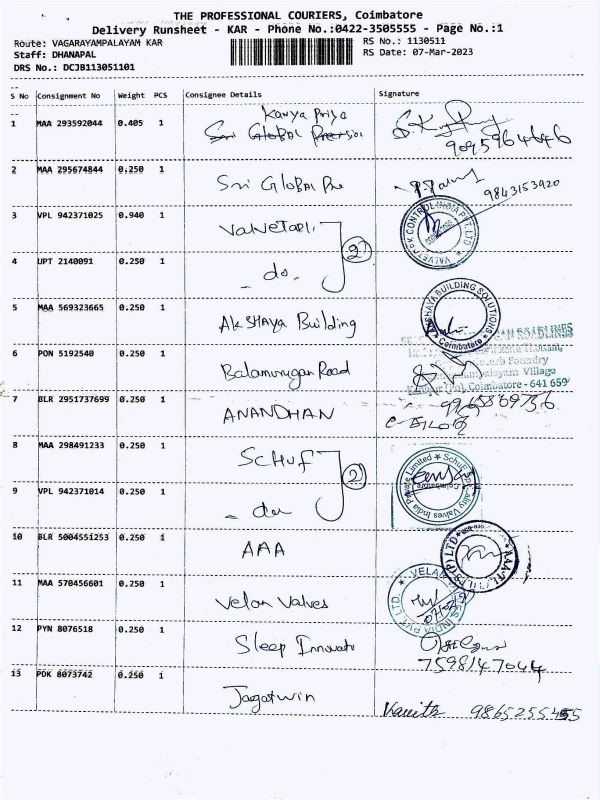 THE PROFESSIONAL COURIERS, Coimbatore
Delivery Runsheet - KAR - Phone No.:0422-3505555 - Page No.:1
Route: VAGARAYAMPALAYAM KAR
RS No.: 1130511
Staff: DHANAPAL
RS Date: 07-Mar-2023
DRS No.: DCJB113051101
S No Consignment No Weight PCS Consignee Details Signature
1 MAA 293592044 0.405 1 Kanya Priya
Sri Global
9095964646
2 MAA 295674844 0.250 1 Sri Global Pre
9843153920
3 VPL 942371025 0.940 1
VALVETORK CONTROL INDIA PVT LTD
2
4 UPT 2140091 0.250 1 - do.
5 MAA 569323665 0.250 1 AKSHAYA Building
AKSHAYA BUILDING SOLUTIONS
Coimbatore
ROADLINES
6 PON 5192540 0.250 1 Balamurugan Road
Foundry
Village
Coimbatore - 641 659
7 BLR 2951737699 0.250 1 ANANDHAN
8 MAA 298491233 0.250 1 SCHUF
2
Schuf Speciality Valves India Private Limited
Coimbatore
9 VPL 942371014 0.250 1 - do
10 BLR 5004551253 0.250 1 AAA
11 MAA 570456601 0.250 1 Velan Valves
VELAN VALVES INDIA PVT LTD
12 PYN 8076518 0.250 1 Sleep Innovate
7598147044
13 PDK 8073742 0.250 1 Jagatwin
Kavitha 9865255455